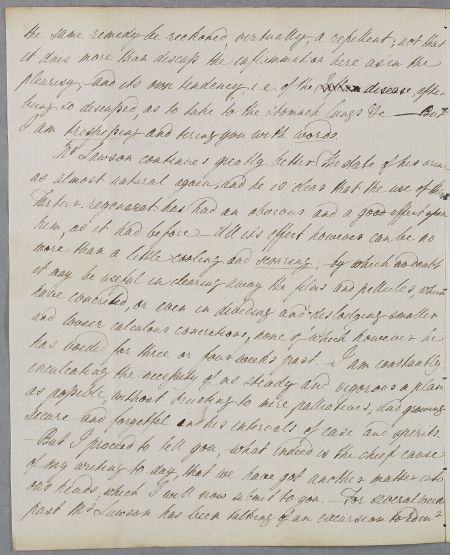 the same remedy be reckoned, virtually, a repellent; not that
it does more than discuss the inflammation here as in the
pleurisy, and its own tendency, i.e. of the disease, after
being so discussed, as to take to the stomach lungs &c — But
I am trespassing and tiring you with words.
Mr Lawson continues greatly better. The state of his urine
as almost natural again; and he is clear that the use of the
Tartar. regenerat. has had an obvious and a good effect upon
him, as it had before — All its effect however can be no
more than a little cooling and scouring; by which no doubt
it may be useful in clearing away the films and pellicules, which
have concreted, or even in dividing and dislodging smaller
and looser calculous concretions, none of which however he
has voided for three or four weeks past. I am constantly
inculcating the necessity of as steady and vigorous a plan
as possible, without trusting to mere palliatives, and growing
secure and forgetful in his intervals of ease and spirits.
— But I proceed to tell you, what indeed is the chief cause
of my writing to day, that we have got another matter into
our heads, which I will now submit to you. — For several weeks
past Mr Lawson has been talking of an excursion to Edinr